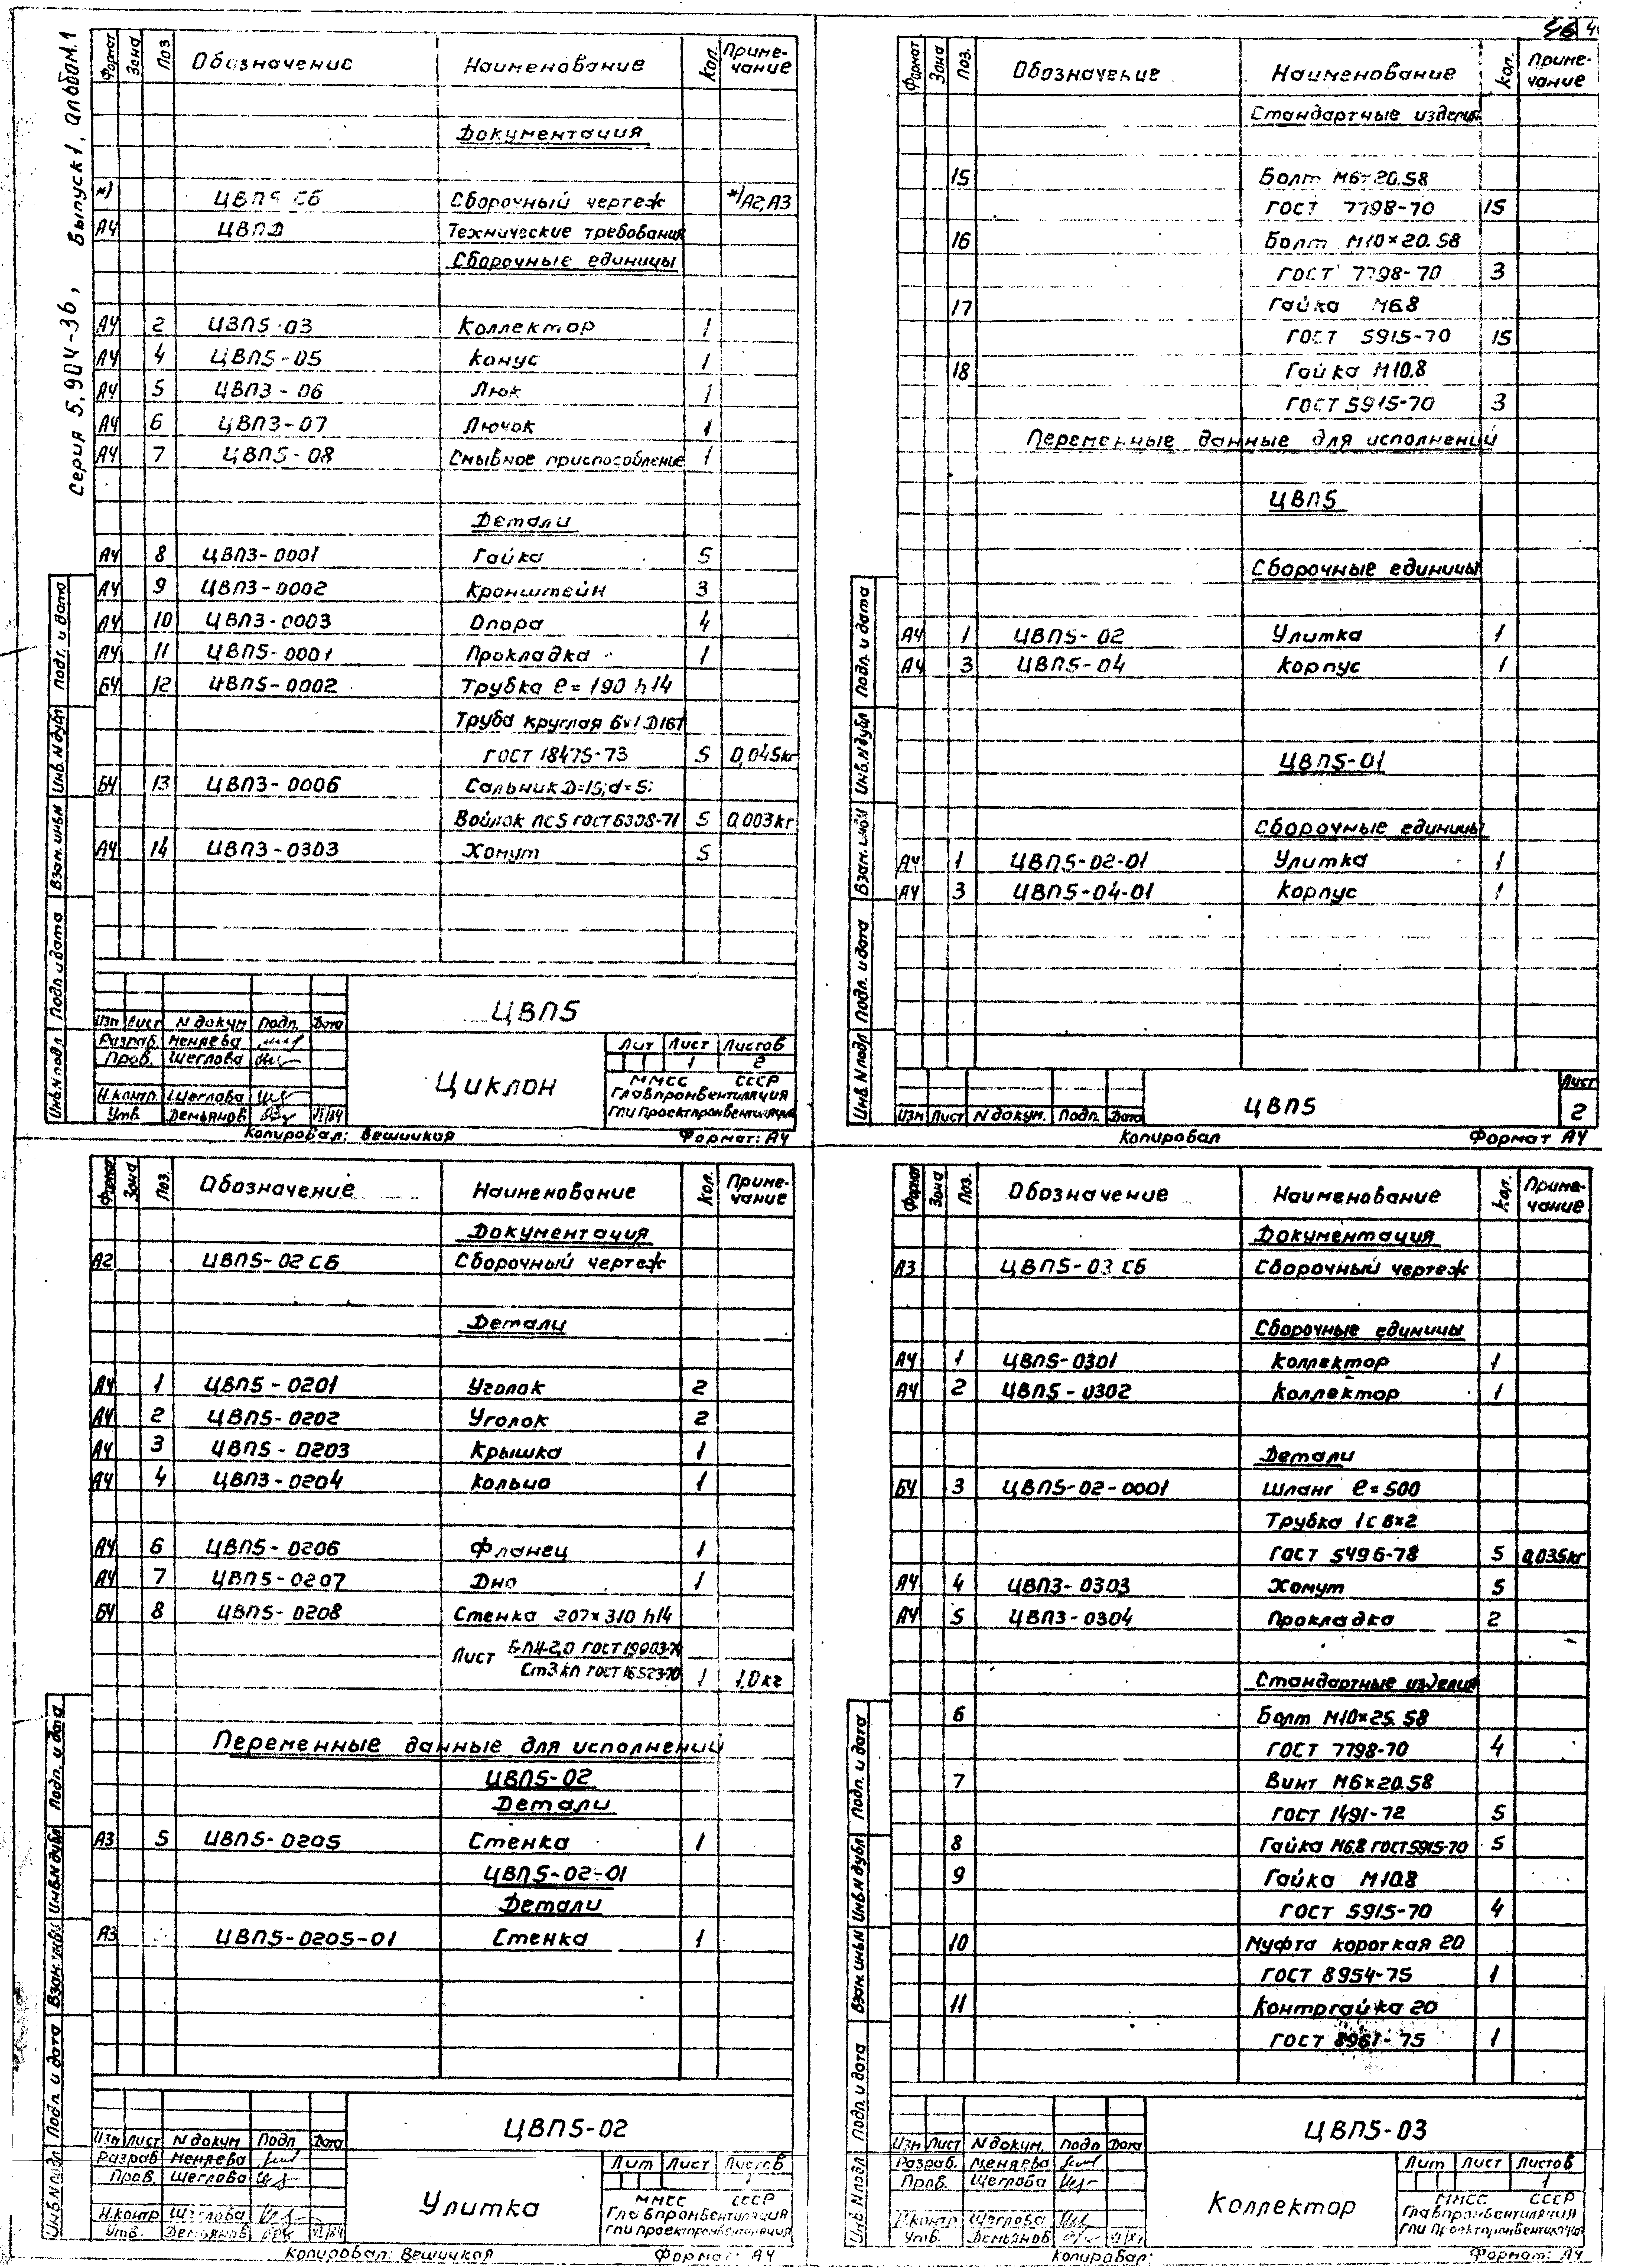 Серия 5.904-36, Выпуск 1, альбом.1
Формат Зона Поз Обозначение Наименование Кол. Приме-чание
Документация
*) ЦВП5 СБ Сборочный чертеж *)А2,А3
А4 ЦВПД Технические требования
Сборочные единицы
А4 2 ЦВП5-03 Коллектор 1
А4 4 ЦВП5-05 Конус 1
А4 5 ЦВП3-06 Люк 1
А4 6 ЦВП3-07 Лючок 1
А4 7 ЦВП5-08 Смывное приспособление 1
Детали
А4 8 ЦВП3-0001 Гайка 5
А4 9 ЦВП3-0002 Кронштейн 3
А4 10 ЦВП3-0003 Опора 4
А4 11 ЦВП5-0001 Прокладка 1
БЧ 12 ЦВП5-0002 Трубка ℓ=190 h14
Труба круглая 6×1 Д16Т
ГОСТ 18475-73 5 0,045кг
БЧ 13 ЦВП3-0006 Сальник D=15; d=5;
Войлок ПС5 ГОСТ 6308-71 5 0,003кг
А4 14 ЦВП3-0303 Хомут 5
Инв.N подл Подп. и дата Взам. инв.N Инв.N дубл Подп. и дата
ЦВП5
Изм Лист N докум Подп. Дата
Разраб. Меняева
Пров. Щеглова
Н.контр. Щеглова
Утв. Демьянов VI/84
Циклон
Лит Лист Листов
1 2
ММСС СССР
Главпромвентиляция
ГПИ Проектпромвентиляция
Копировал: Вешицкая Формат: А4
Формат Зона Поз. Обозначение Наименование Кол. Приме-чание
Стандартные изделия
15 Болт М6×20.58
ГОСТ 7798-70 15
16 Болт М10×20.58
ГОСТ 7798-70 3
17 Гайка М6.8
ГОСТ 5915-70 15
18 Гайка М10.8
ГОСТ 5915-70 3
Переменные данные для исполнений
ЦВП5
Сборочные единицы
А4 1 ЦВП5-02 Улитка 1
А4 3 ЦВП5-04 Корпус 1
ЦВП5-01
Сборочные единицы
А4 1 ЦВП5-02-01 Улитка 1
А4 3 ЦВП5-04-01 Корпус 1
Инв.N подл Подп. и дата Взам. инв.N Инв.N дубл Подп. и дата
Изм Лист N докум. Подп. Дата
ЦВП5
Лист
2
Копировал Формат А4
Формат Зона Поз. Обозначение Наименование Кол. Приме-чание
Документация
А2 ЦВП5-02 СБ Сборочный чертеж
Детали
А4 1 ЦВП5-0201 Уголок 2
А4 2 ЦВП5-0202 Уголок 2
А4 3 ЦВП5-0203 Крышка 1
А4 4 ЦВП3-0204 Кольцо 1
А4 6 ЦВП5-0206 Фланец 1
А4 7 ЦВП5-0207 Дно 1
БЧ 8 ЦВП5-0208 Стенка 207×310 h14
Лист Б-ПН-2,0 ГОСТ 19903-74
Ст3 кп ГОСТ 16523-70 1 1,0кг
Переменные данные для исполнений
ЦВП5-02
Детали
А3 5 ЦВП5-0205 Стенка 1
ЦВП5-02-01
Детали
А3 ЦВП5-0205-01 Стенка 1
Инв.N подл Подп. и дата Взам. инв.N Инв.N дубл Подп. и дата
ЦВП5-02
Изм Лист N докум Подп Дата
Разраб Меняева
Пров. Щеглова
Н.контр Щеглова
Утв. Демьянов VI/84
Улитка
Лит Лист Листов
1
ММСС СССР
Главпромвентиляция
ГПИ Проектпромвентиляция
Копировал: Вешицкая Формат: А4
Формат Зона Поз. Обозначение Наименование Кол. Приме-чание
Документация
А3 ЦВП5-03 СБ Сборочный чертеж
Сборочные единицы
А4 1 ЦВП5-0301 Коллектор 1
А4 2 ЦВП5-0302 Коллектор 1
Детали
БЧ 3 ЦВП5-02-0001 Шланг ℓ=500
Трубка 1с 6×2
ГОСТ 5496-78 5 0,035кг
А4 4 ЦВП3-0303 Хомут 5
А4 5 ЦВП3-0304 Прокладка 2
Стандартные изделия
6 Болт М10×25.58
ГОСТ 7798-70 4
7 Винт М6×20.58
ГОСТ 1491-72 5
8 Гайка М6.8 ГОСТ 5915-70 5
9 Гайка М10.8
ГОСТ 5915-70 4
10 Муфта короткая 20
ГОСТ 8954-75 1
11 Контргайка 20
ГОСТ 8961-75 1
Инв.N подл Подп. и дата Взам. инв.N Инв.N дубл Подп. и дата
ЦВП5-03
Изм Лист N докум. Подп Дата
Разраб. Меняева
Пров. Щеглова
Н.контр Щеглова
Утв. Демьянов VI/84
Коллектор
Лит Лист Листов
1
ММСС СССР
Главпромвентиляция
ГПИ Проектпромвентиляция
Копировал: Формат: А4